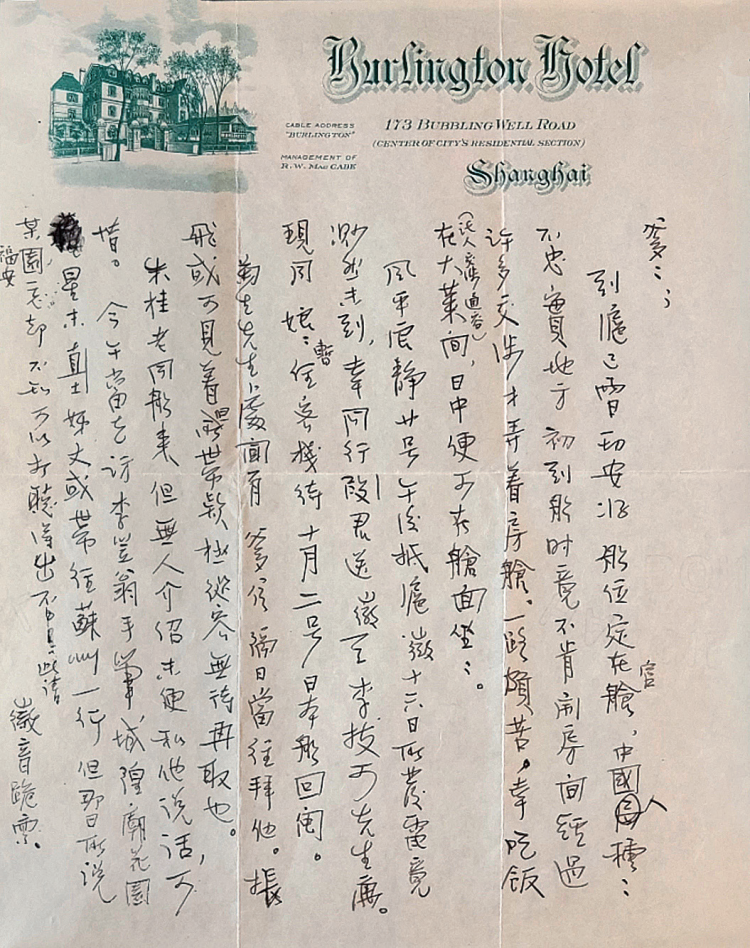 Burlington Hotel
CABLE ADDRESS
"BURLINGTON"
MANAGEMENT OF
R. W. MAC CABE
173 BUBBLING WELL ROAD
(CENTER OF CITY'S RESIDENTIAL SECTION)
Shanghai
爹:;
到滬已四日 船位定在官艙,中國人種:
不忠實地方 初到船時竟不肯開房間 經過
許多交涉才弄着房艙。一路頗苦。幸吃飯
在大菜間,日中便可在艙面坐:。
風平浪靜 廿号午後抵滬 徽十六日所發電竟
渺然未到,幸同行殷君送徽至李拔可先生處。
現同娘:暫住客棧待十月二号日本船回閩。
先生處面有 爹信 隔日當往拜他。振
飛或可見着 但所帶款極從容 無待再取也。
朱桂老同船來 但無人介紹 未便和他說話,可
惜。 今午當去訪李 城隍廟花園
姊丈或帶往蘇州一行 但那日所說
某園忘却 不知可以打聽得出不 此請
福安
徽音跪稟。